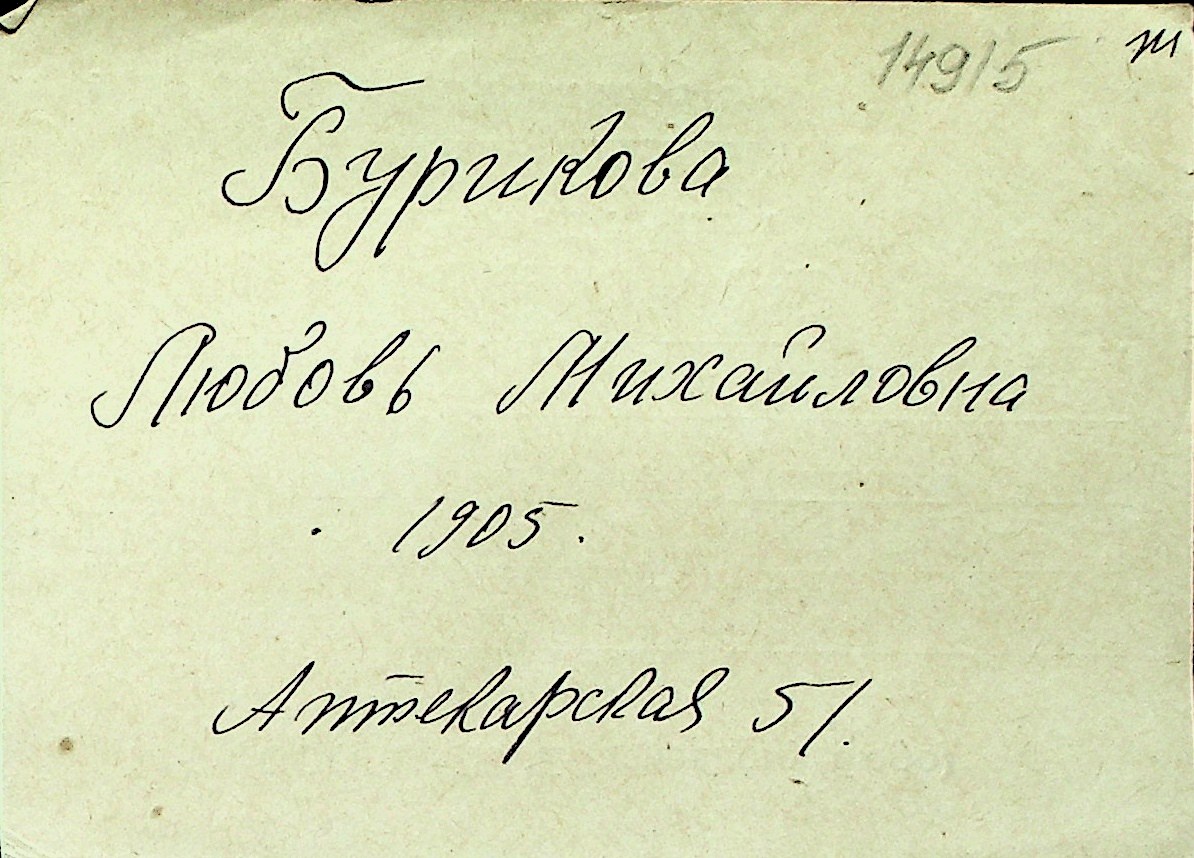 14915 ж
Бурикова
Любовь Михайловна
1905.
Аптекарская 51.